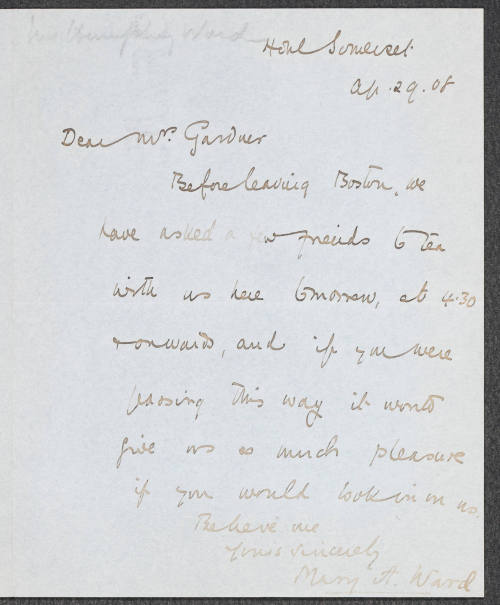 Mrs. Humphry Ward
Hotel Somerset.
Ap. 29. 08
Dear Mrs. Gardner
Before leaving Boston, we
have asked a few friends to tea
with us here tomorrow, at 4.30
& onwards, and if you were
passing this way it would
give us so much pleasure
if you would look in on us.
Believe me
Yours sincerely
Mary A. Ward